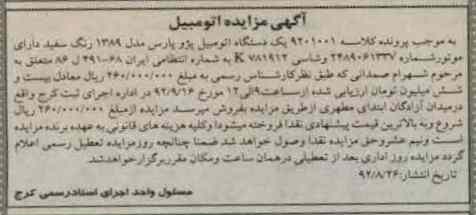 آگهی مزایده اتومبیل
به موجب پرونده کلاسه ۹۲۰۱۰۰۱ یک دستگاه اتومبیل پژو پارس مدل ۱۳۸۹ رنگ سفید دارای
موتورشماره ۲۴۸۹۰۶۱۳۳۷ وشاسی K ۷۸۱۹۱۲ به شماره انتظامی ایران ۶۸-۴۹۱ ل ۸۶ متعلق به
مرحوم شهرام صمدانی که طبق نظرکارشناس رسمی به مبلغ ۲۶۰/۰۰۰/۰۰۰ ریال معادل بیست و
شش میلیون تومان ارزیابی شده ازساعت۹الی۱۲ مورخ ۹۲/۹/۱۶ در اداره اجرای ثبت کرج واقع
درمیدان آزادگان ابتدای مطهری ازطریق مزایده بفروش میرسد مزایده ازمبلغ ۲۶۰/۰۰۰/۰۰۰ ریال
شروع وبه بالاترین قیمت پیشنهادی نقدا فروخته میشودا وکلیه هزینه های قانونی به عهده برنده مزایده
است ونیم عشروحق مزایده نقدا وصول خواهد شد ضمنا چنانچه روزمزایده تعطیل رسمی اعلام
گردد مزایده روز اداری بعد از تعطیلی درهمان ساعت ومکان مقرربرگزارخواهدشد.
تاریخ انتشار:۹۲/۸/۲۶
مسئول واحد اجرای اسنادرسمی کرج